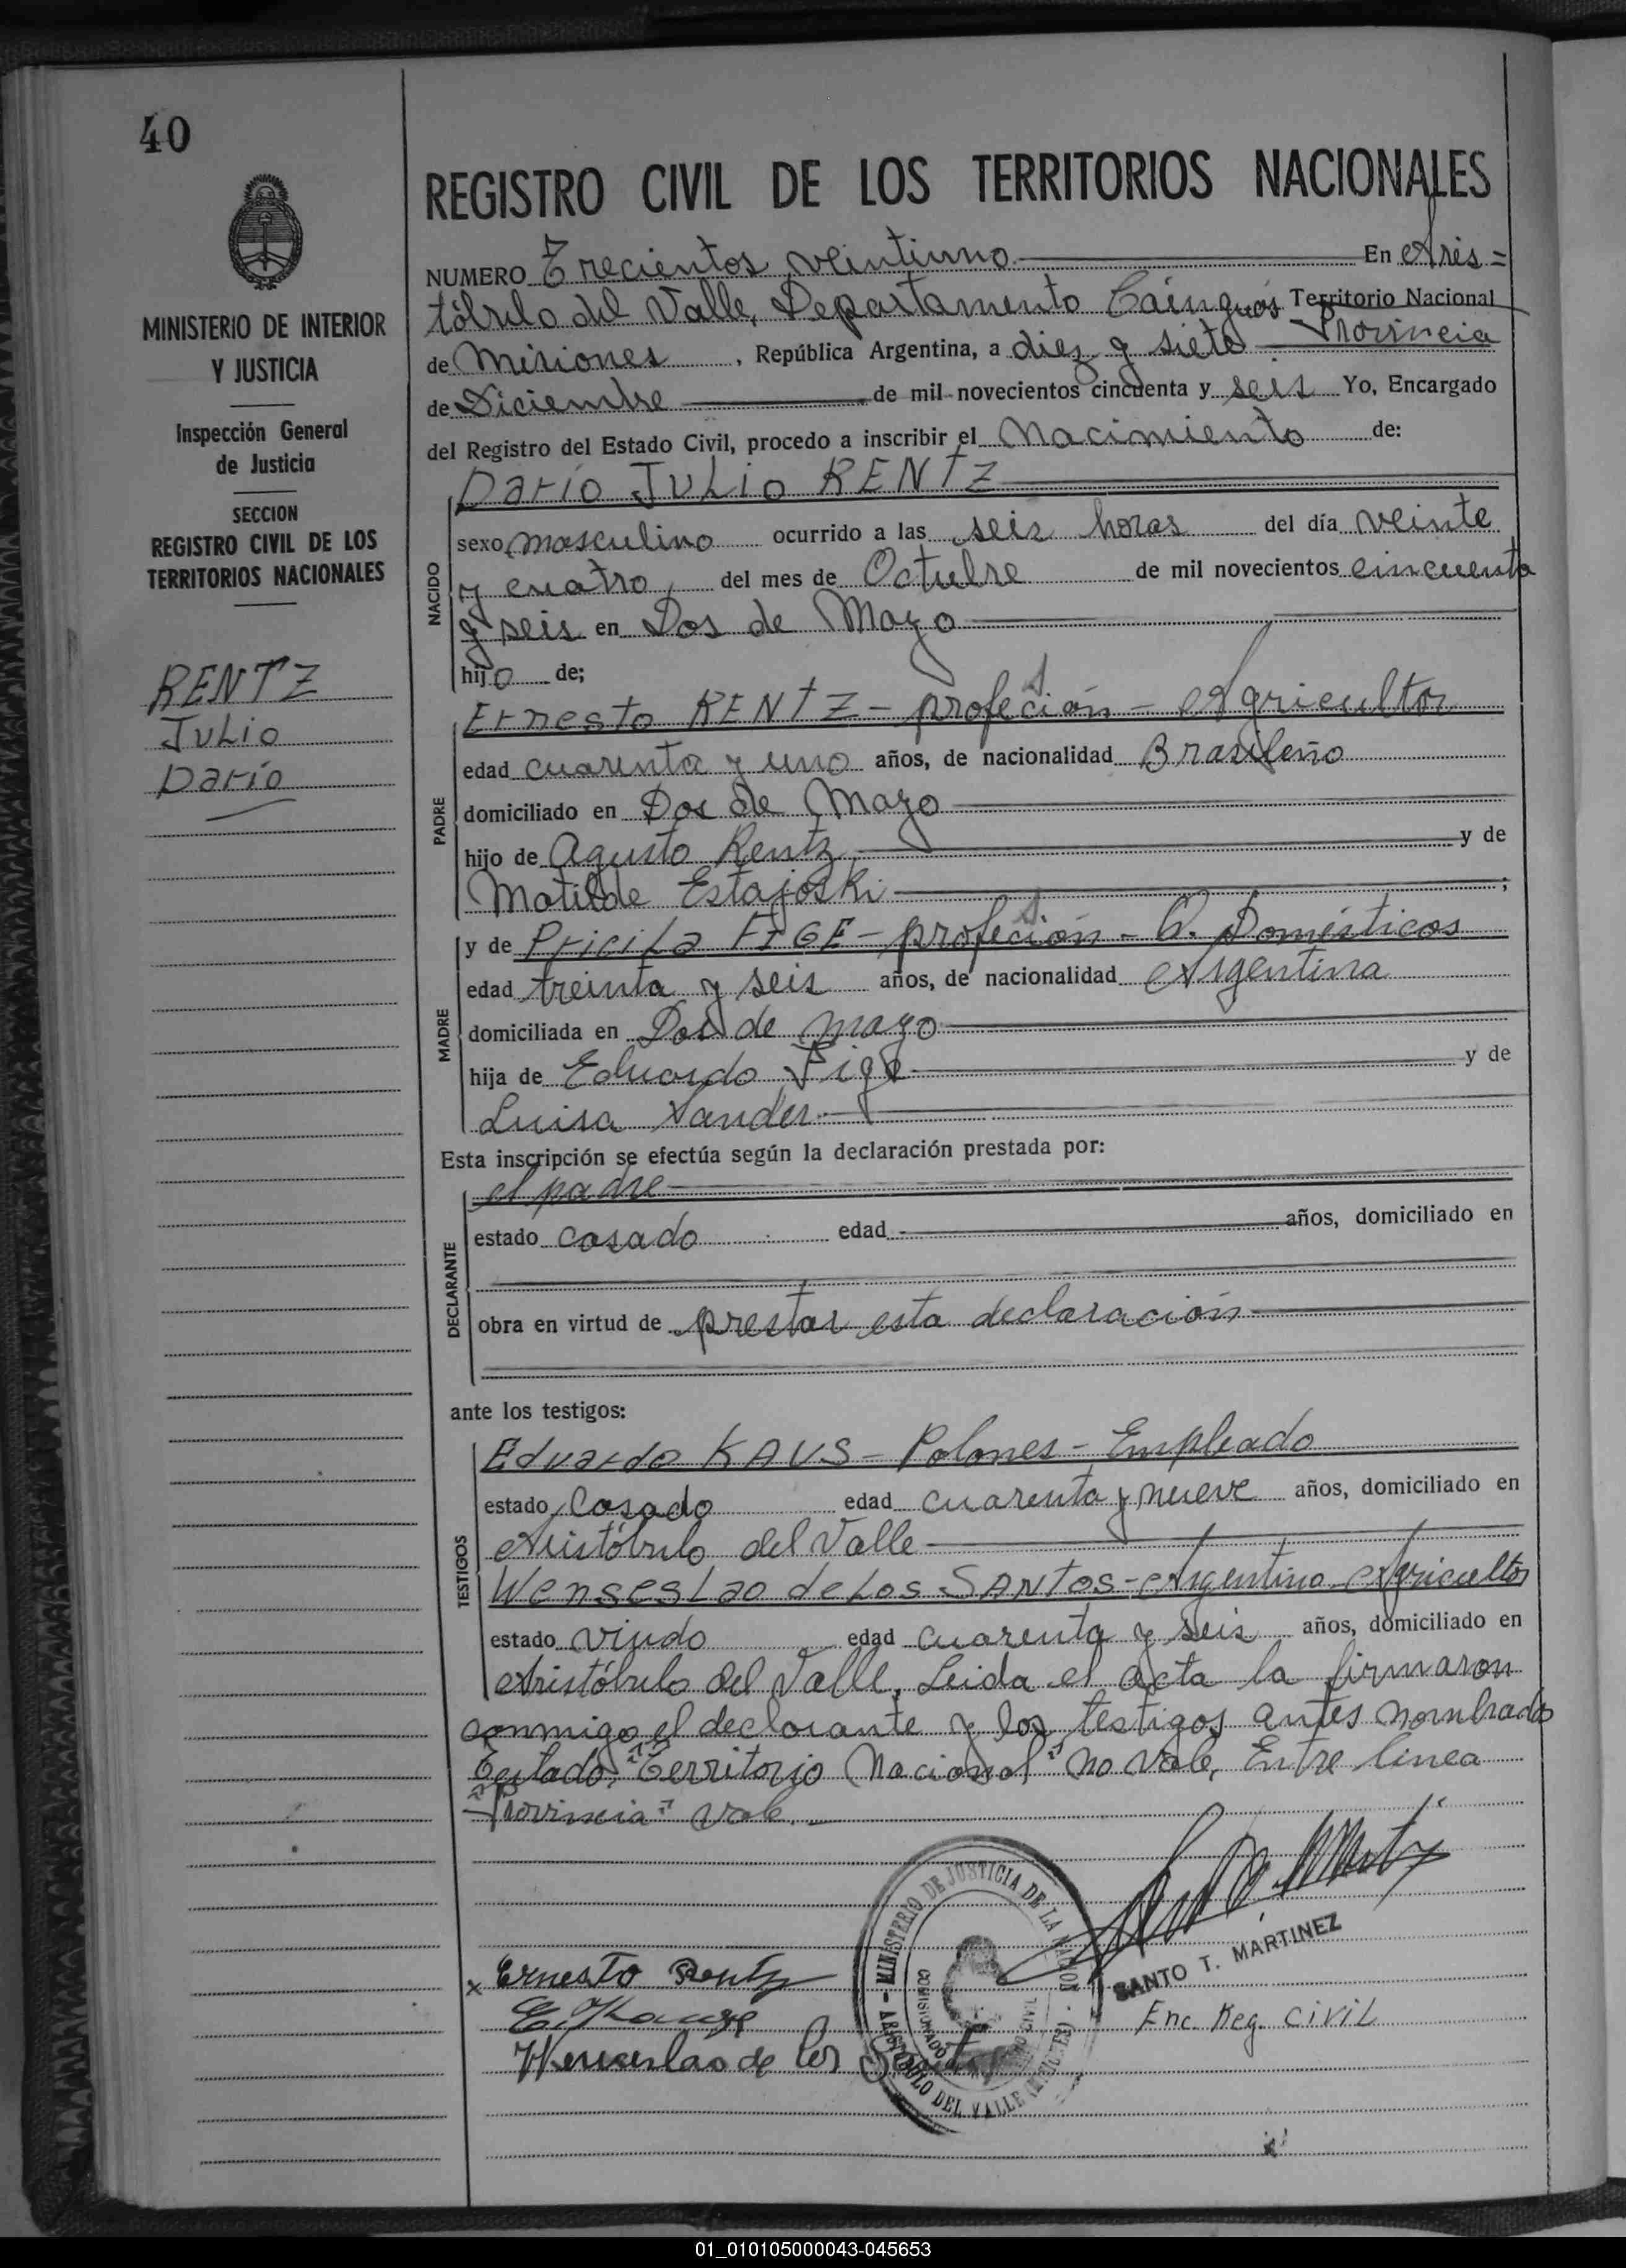 40
MINISTERIO DE INTERIOR
Y JUSTICIA
Inspección General
de Justicia
SECCION
REGISTRO CIVIL DE LOS
TERRITORIOS NACIONALES
RENTZ
Julio
Darío
REGISTRO CIVIL DE LOS TERRITORIOS NACIONALES
NUMERO Trecientos veintiuno En Aris=
tóbulo del Valle, Departamento Cainguás Territorio Nacional
Provincia
de Misiones, República Argentina, a diez y siete
de Diciembre de mil novecientos cincuenta y seis Yo, Encargado
del Registro del Estado Civil, procedo a inscribir el Nacimiento de:
Darío Julio RENTZ
NACIDO
sexo masculino ocurrido a las seis horas del día veinte
y cuatro, del mes de Octubre de mil novecientos cincuenta
y seis en Dos de Mayo
hijo de;
PADRE
Ernesto RENTZ - profeción - Agricultor
edad cuarenta y uno años, de nacionalidad Brasileño
domiciliado en Dos de Mayo
hijo de Agusto Rentz, y de
Matilde Estajoski ;
MADRE
y de Pricila FIGE - profeción - Q. Domésticos
edad treinta y seis años, de nacionalidad Argentina
domiciliada en Dos de Mayo
hija de Eduardo Fige y de
Luisa Sander
Esta inscripción se efectúa según la declaración prestada por:
DECLARANTE
el padre
estado casado edad años, domiciliado en
obra en virtud de prestar esta declaración
ante los testigos:
TESTIGOS
Eduardo KAUS - Polones - Empleado
estado Casado edad cuarenta y nueve años, domiciliado en
Aristóbulo del Valle
Wenseslao de Los SANTOS - Argentino - Agricultor
estado viudo edad cuarenta y seis años, domiciliado en
Aristóbulo del Valle, Leida el acta la firmaron
conmigo el declarante y los testigos antes nombrados
Testado, "Territorio Nacional" no vale, Entre linea
"Provincia" vale.
MINISTERIO DE JUSTICIA DE LA NACION
ARISTOBULO DEL VALLE (MISIONES)
SANTO T. MARTINEZ
Enc. Reg. CIVIL
x Ernesto Rentz
Wenceslao de los Santos
01_010105000043-045653